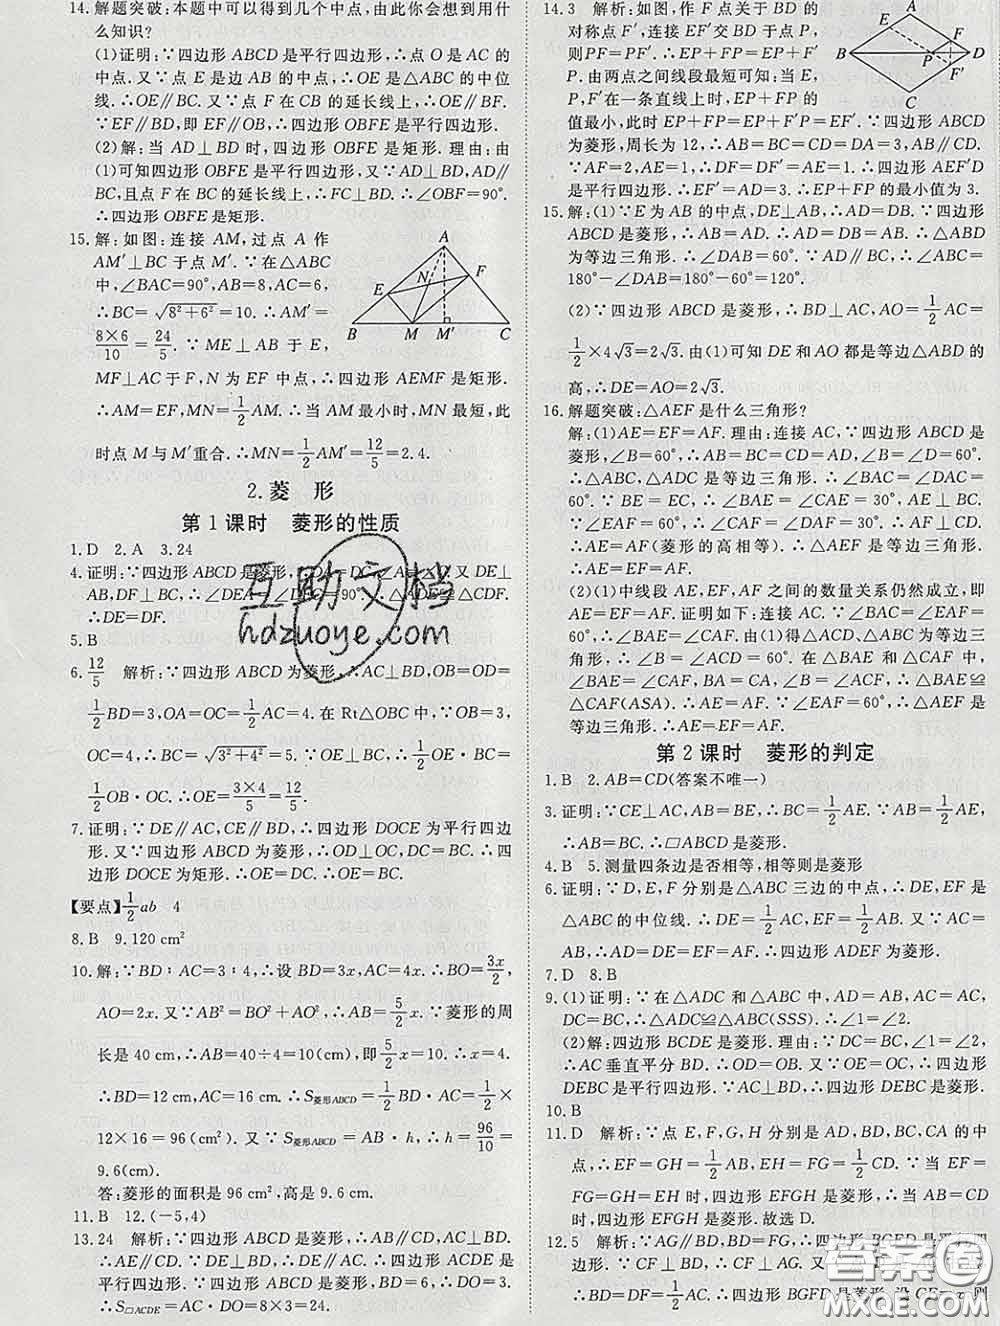 14. 解题突破:本题中可以得到几个中点,由此你会想到用什
么知识?
(1)证明:∵四边形 ABCD 是平行四边形,∴点 O 是 AC 的
中点.又∵点 E 是边 AB 的中点,∴OE 是△ABC 的中位
线.∴OE∥BC.又∵点 F 在 CB 的延长线上,∴OE∥BF.
∵EF∥BD,即 EF∥OB,∴四边形 OBFE 是平行四边形.
(2)解:当 AD⊥BD 时,四边形 OBFE 是矩形.理由:由
(1)可知四边形 OBFE 是平行四边形.又∵AD⊥BD,AD∥
BC,且点 F 在 BC 的延长线上,∴FC⊥BD.∴∠OBF=90°.
∴四边形 OBFE 是矩形.
15. 解:如图:连接 AM,过点 A 作
AM′⊥BC 于点 M′.∵在△ABC
中,∠BAC=90°,AB=8,AC=6,
∴BC=√(8²+6²)=10.∴AM′=
8×6/10=24/5.∵ME⊥AB 于 E,
A
E
N
F
B
M
M′
C
MF⊥AC 于 F,N 为 EF 中点,∴四边形 AEMF 是矩形.
∴AM=EF,MN=1/2AM.∴当 AM 最小时,MN 最短,此
时点 M 与 M′重合.∴MN=1/2AM′=12/5=2.4.
2.菱 形
第 1 课时 菱形的性质
1.D 2.A 3.24
4.证明:∵四边形 ABCD 是菱形,
AB,DF⊥BC,
∴DE=DF.
5.B
6. 12/5 解析:∵四边形 ABCD 为菱形,∴AC⊥BD,OB=OD=
1/2BD=3,OA=OC=1/2AC=4.在 Rt△OBC 中,∵OB=3,
OC=4,∴BC=√(3²+4²)=5.∵OE⊥BC,∴1/2OE·BC=
1/2OB·OC.∴OE=3×4/5=12/5.
7.证明:∵DE∥AC,CE∥BD,∴四边形 DOCE 为平行四边
形.又∵四边形 ABCD 为菱形,∴OD⊥OC,DC=BC.∴四
边形 DOCE 为矩形.∴OE=DC.∴OE=BC.
【要点】1/2ab 4
8.B 9.120 cm²
10.解:∵BD∶AC=3∶4,∴设 BD=3x,AC=4x.∴BO=3x/2,
AO=2x.又∵AB²=BO²+AO²,∴AB=5/2x.∵菱形的周
长是 40 cm,∴AB=40÷4=10(cm),即5/2x=10.∴x=4.
∴BD=12 cm,AC=16 cm.∴S菱形ABCD=1/2BD·AC=1/2×
12×16=96(cm²).又∵S菱形ABCD=AB·h,∴h=96/10=
9.6(cm).
答:菱形的面积是 96 cm²,高是 9.6 cm.
11.B 12.(-5,4)
13.24 解析:∵四边形 ABCD 是菱形,∴AC⊥BD.
∴AE∥CD.∵DE⊥BD,∴DE∥AC.∴四边形 ACDE 是
平行四边形.∵四边形 ABCD 是菱形,
∴S▱ACDE=AC·DO=8×3=24.
14.3 解析:如图,作 F 点关于 BD 的
对称点 F′,连接 EF′交 BD 于点 P,
则 PF=PF′.∴EP+FP=EP+F′P.
由两点之间线段最短可知:当 E,P,
F′在一条直线上时,EP+FP 的
A
E
F
B
P
D
F′
C
值最小,此时 EP+FP=EP+F′P=EF′.∵四边形 ABCD
为菱形,周长为 12,∴AB=BC=CD=DA=3,AB∥CD.
∵AF=2,AE=1,∴DF=DF′=AE=1.∴四边形 AEF′D
是平行四边形.∴EF′=AD=3.∴EP+FP 的最小值为 3.
15.解:(1)∵E 为 AB 的中点,DE⊥AB,∴AD=DB.∵四边形
ABCD 是菱形,∴AB=AD.∴AD=DB=AB.∴△ABD
为等边三角形.∴∠DAB=60°.∵AD∥BC,∴∠ABC=
180°-∠DAB=180°-60°=120°.
(2)∵四边形 ABCD 是菱形,∴BD⊥AC,AO=1/2AC=
1/2×4√3=2√3.由(1)可知 DE 和 AO 都是等边△ABD 的
高,∴DE=AO=2√3.
16.解题突破:△AEF 是什么三角形?
解:(1)AE=EF=AF.理由:连接 AC,∵四边形 ABCD 是
菱形,∠B=60°,∴AB=BC=CD=AD,∠B=∠D=60°.
∴△ABC,△ADC 是等边三角形.∴∠BAC=∠DAC=
60°.∵BE=EC,∴∠BAE=∠CAE=30°,AE⊥BC.
∵∠EAF=60°,∴∠CAF=∠DAF=30°.∴AF⊥CD.
∴AE=AF(菱形的高相等).∴△AEF 是等边三角形.
∴AE=EF=AF.
(2)(1)中线段 AE,EF,AF 之间的数量关系仍然成立,即
AE=EF=AF.证明如下:连接 AC.∵∠BAC=∠EAF=
60°,∴∠BAE=∠CAF.由(1)得△ACD,△ABC 为等边三
角形,∴∠B=∠ACD=60°.在△BAE 和△CAF 中,
∠BAE=∠CAF,BA=CA,∠B=∠ACF,∴△BAE≌
△CAF(ASA).∴AE=AF.又∵∠EAF=60°,∴△AEF 是
等边三角形.∴AE=EF=AF.
第 2 课时 菱形的判定
1.B 2.AB=CD(答案不唯一)
3.证明:∵CE⊥AC,AB=BE,∴BC=1/2AE.∵AB=1/2AE,
∴AB=BC.∴▱ABCD 是菱形.
4.B 5.测量四条边是否相等,相等则是菱形
6.证明:∵D,E,F 分别是△ABC 三边的中点,∴DE,EF 是
△ABC 的中位线.∴DE=1/2AC,EF=1/2AB.又∵AB=
AC,∴AD=DE=EF=AF.∴四边形 ADEF 为菱形.
7.D 8.B
9.(1)证明:∵在△ADC 和△ABC 中,AD=AB,AC=AC,
DC=BC,∴△ADC≌△ABC(SSS).∴∠1=∠2.
(2)解:四边形 BCDE 是菱形.理由:∵DC=BC,∠1=∠2,
∴AC 垂直平分 BD.∴OD=OB.又∵OE=OC,∴四边形
DEBC 是平行四边形.∵AC⊥BD,∴四边形 DEBC 是菱形.
10.B
11.D 解析:∵点 E,F,G,H 分别是 AD,BD,BC,CA 的中
点,∴EF=GH=1/2AB,EH=FG=1/2CD.∵当 EF=
FG=GH=EH 时,四边形 EFGH 是菱形,∴当 AB=CD
时,四边形 EFGH 是菱形.故选 D.
12.5 解析:∵AG∥BD,BD=FG,∴四边形 BGFD 是平行四边
形.∵CF⊥BD,∴CF⊥AG.又∵
∴BD=DF=1/2AC.∴四边形 BGFD 是菱形.设 GF=x,则
互助文档
hdzuoye.com
答案圈
MXQE.COM